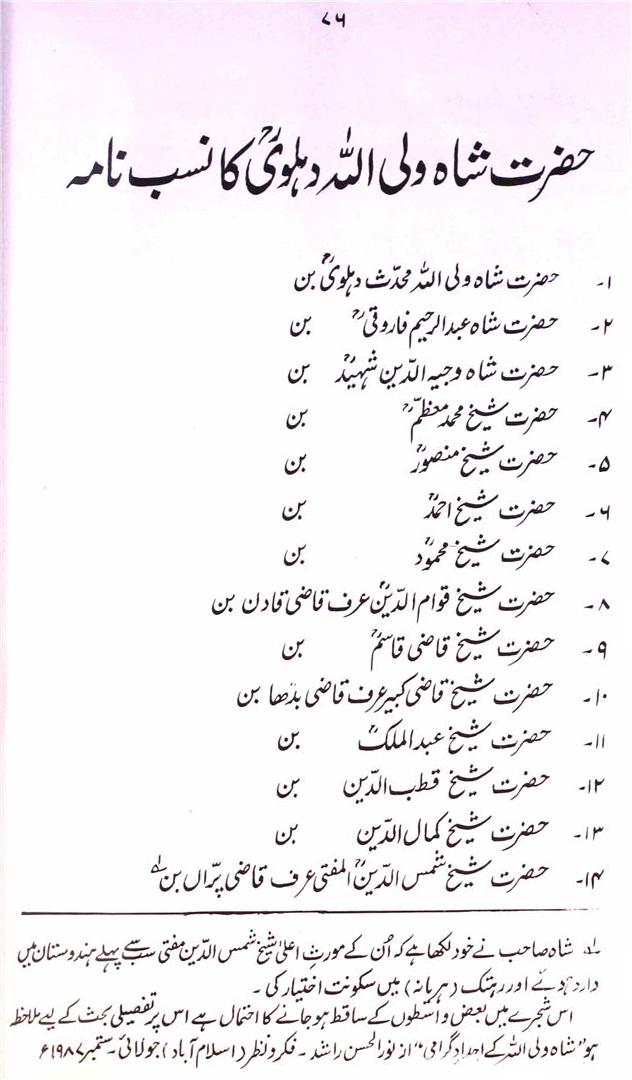 ۷۶
حضرت شاہ ولی اللہ دہلویؒ کا نسب نامہ
۱۔ حضرت شاہ ولی اللہ محدّث دہلویؒ بن
۲۔ حضرت شاہ عبدالرحیم فاروقیؒ بن
۳۔ حضرت شاہ وجیہ الدّین شہیدؒ بن
۴۔ حضرت شیخ محمد معظمؒ بن
۵۔ حضرت شیخ منصورؒ بن
۶۔ حضرت شیخ احمدؒ بن
۷۔ حضرت شیخ محمودؒ بن
۸۔ حضرت شیخ قوام الدّینؒ عرف قاضی قادن بن
۹۔ حضرت شیخ قاضی قاسمؒ بن
۱۰۔ حضرت شیخ قاضی کبیر عرف قاضی بدھا بن
۱۱۔ حضرت شیخ عبدالملکؒ بن
۱۲۔ حضرت شیخ قطب الدّین بن
۱۳۔ حضرت شیخ کمال الدّین بن
۱۴۔ حضرت شیخ شمس الدّینؒ المفتی عرف قاضی پرّاں بن لہ
لہ شاہ صاحب نے خود لکھا ہے کہ اُن کے مورثِ اعلیٰ شیخ شمس الدّین مفتی سب سے پہلے ہندوستان میں
وارد ہوئے اور رہتک (ہریانہ) میں سکونت اختیار کی۔
اس شجرے میں بعض واسطوں کے ساقط ہو جانے کا احتمال ہے اس پر تفصیلی بحث کے لیے ملاحظہ
ہو "شاہ ولی اللہ کے اجداد گرامی" از نور الحسن راشد۔ فکر و نظر (اسلام آباد) جولائی۔ ستمبر ۱۹۸۷ء